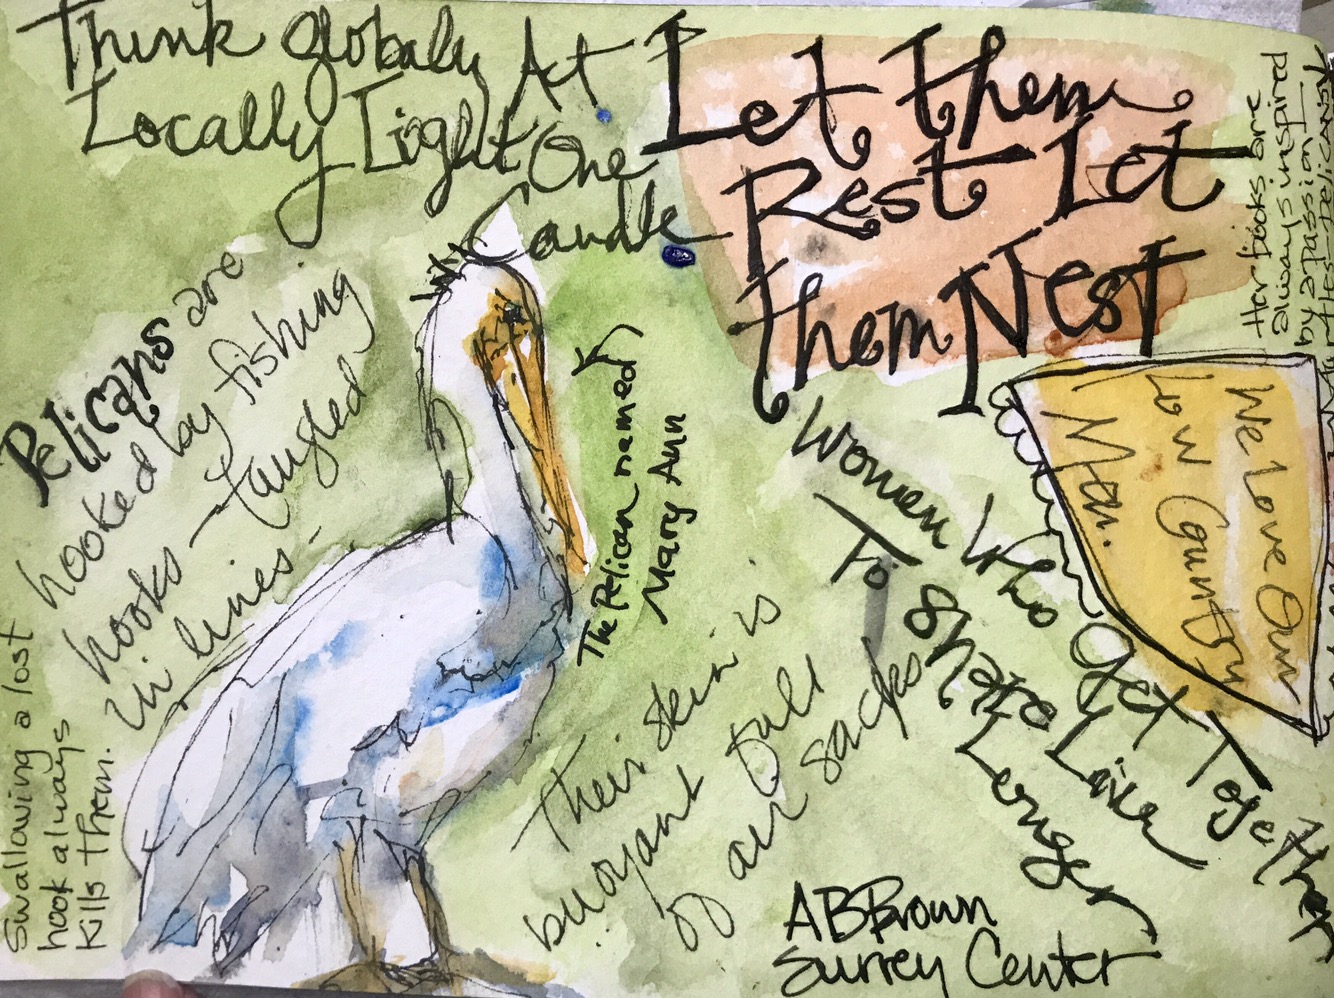 Think globaly Act
Locally Light One
Candle
Let them
Rest Let
them Nest
Her books are
always inspired
by a passion
Pelicans are
hooked by fishing
hooks - tangled
in lines -
Swallowing a lost
hook always
kills them.
(The Pelican named)
Mary Ann
their skin is
buoyant full
of air sacks
We love Our
Low Country
Man.
Women Who Get Together
To Share Live
Longer
ABBrown
Surrey Center